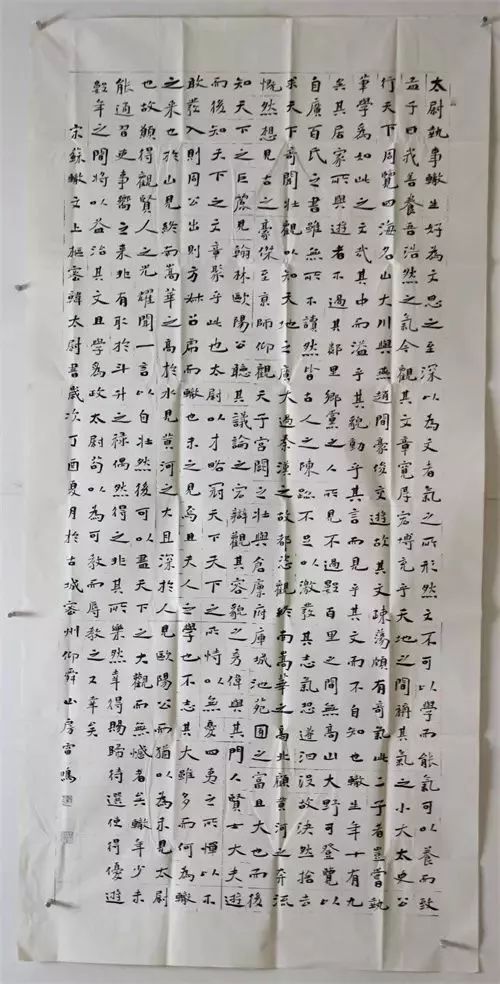 太尉執事轍生好為文思之至深以為文者氣之所形然文不可以學而能氣可以養而致
孟子曰我善養吾浩然之氣今觀其文章寬厚宏博充乎天地之間稱其氣之小大太史公
行天下周覽四海名山大川與燕趙間豪俊交遊故其文疎蕩頗有奇氣此二子者豈嘗執
筆學為如此之文哉其中而溢乎其貌動乎其言而見乎其文而不自知也轍生年十有九
矣其居家所與遊者不過其鄰里鄉黨之人所見不過數百里之間無高山大野可登覽以
自廣百氏之書雖無所不讀然皆古人之陳跡不足以激發其志氣恐遂汩沒故決然捨去
求天下奇聞壯觀以知天地之廣大過秦漢之故都恣觀終南嵩華之高北顧黃河之奔流
慨然想見古之豪傑至京師仰觀天子宮闕之壯與倉廩府庫城池苑囿之富且大也而後
知天下之巨麗見翰林歐陽公聽其議論之宏辯觀其容貌之秀偉與其門人賢士大夫遊
而後知天下之文章聚乎此也太尉以才略冠天下天下之所恃以無憂四夷之所憚以不
敢發入則周公出則方叔召虎而轍也未之見焉且夫人之學也不志其大雖多而何為轍
之來也於山見終南嵩華之高於水見黃河之大且深於人見歐陽公而猶以為未見太尉
也故願得觀賢人之光耀聞一言以自壯然後可以盡天下之大觀而無憾者矣轍年少未
能通習吏事嚮之來非有取於斗升之祿偶然得之非其所樂然幸得賜歸待選使得優遊
數年之間將以益治其文且學為政太尉苟以為可教而辱教之又幸矣
宋蘇轍文上樞密韓太尉書歲次丁酉夏月於古城容州仰舜山房雷鳴